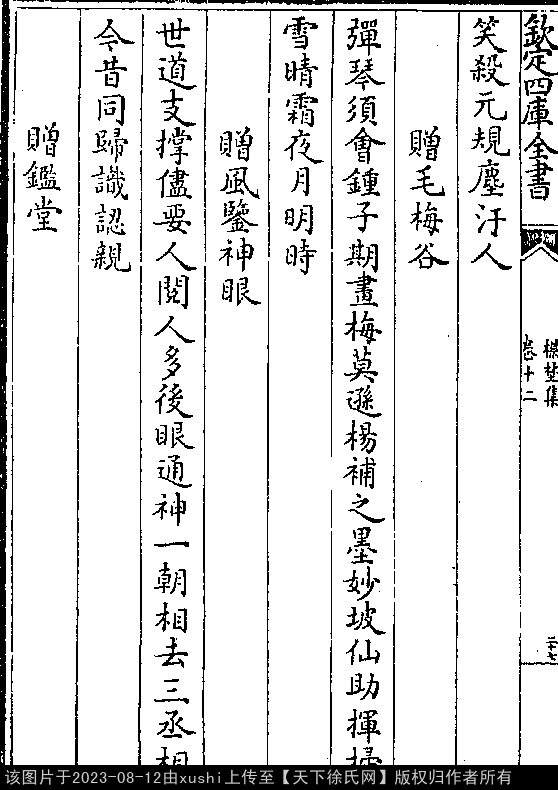 欽定四庫全書
樵埜集
卷十二
二十七
笑殺元規塵汙人
贈毛梅谷
彈琴須會鍾子期畫梅莫遜楊補之墨妙坡仙助揮掃
雪晴霜夜月明時
贈風鑒神眼
世道支撐儘要人閱人多後眼通神一朝相去三丞相
今昔同歸識認親
贈鑑堂
该图片于2023-08-12由xushi上传至【天下徐氏网】版权归作者所有